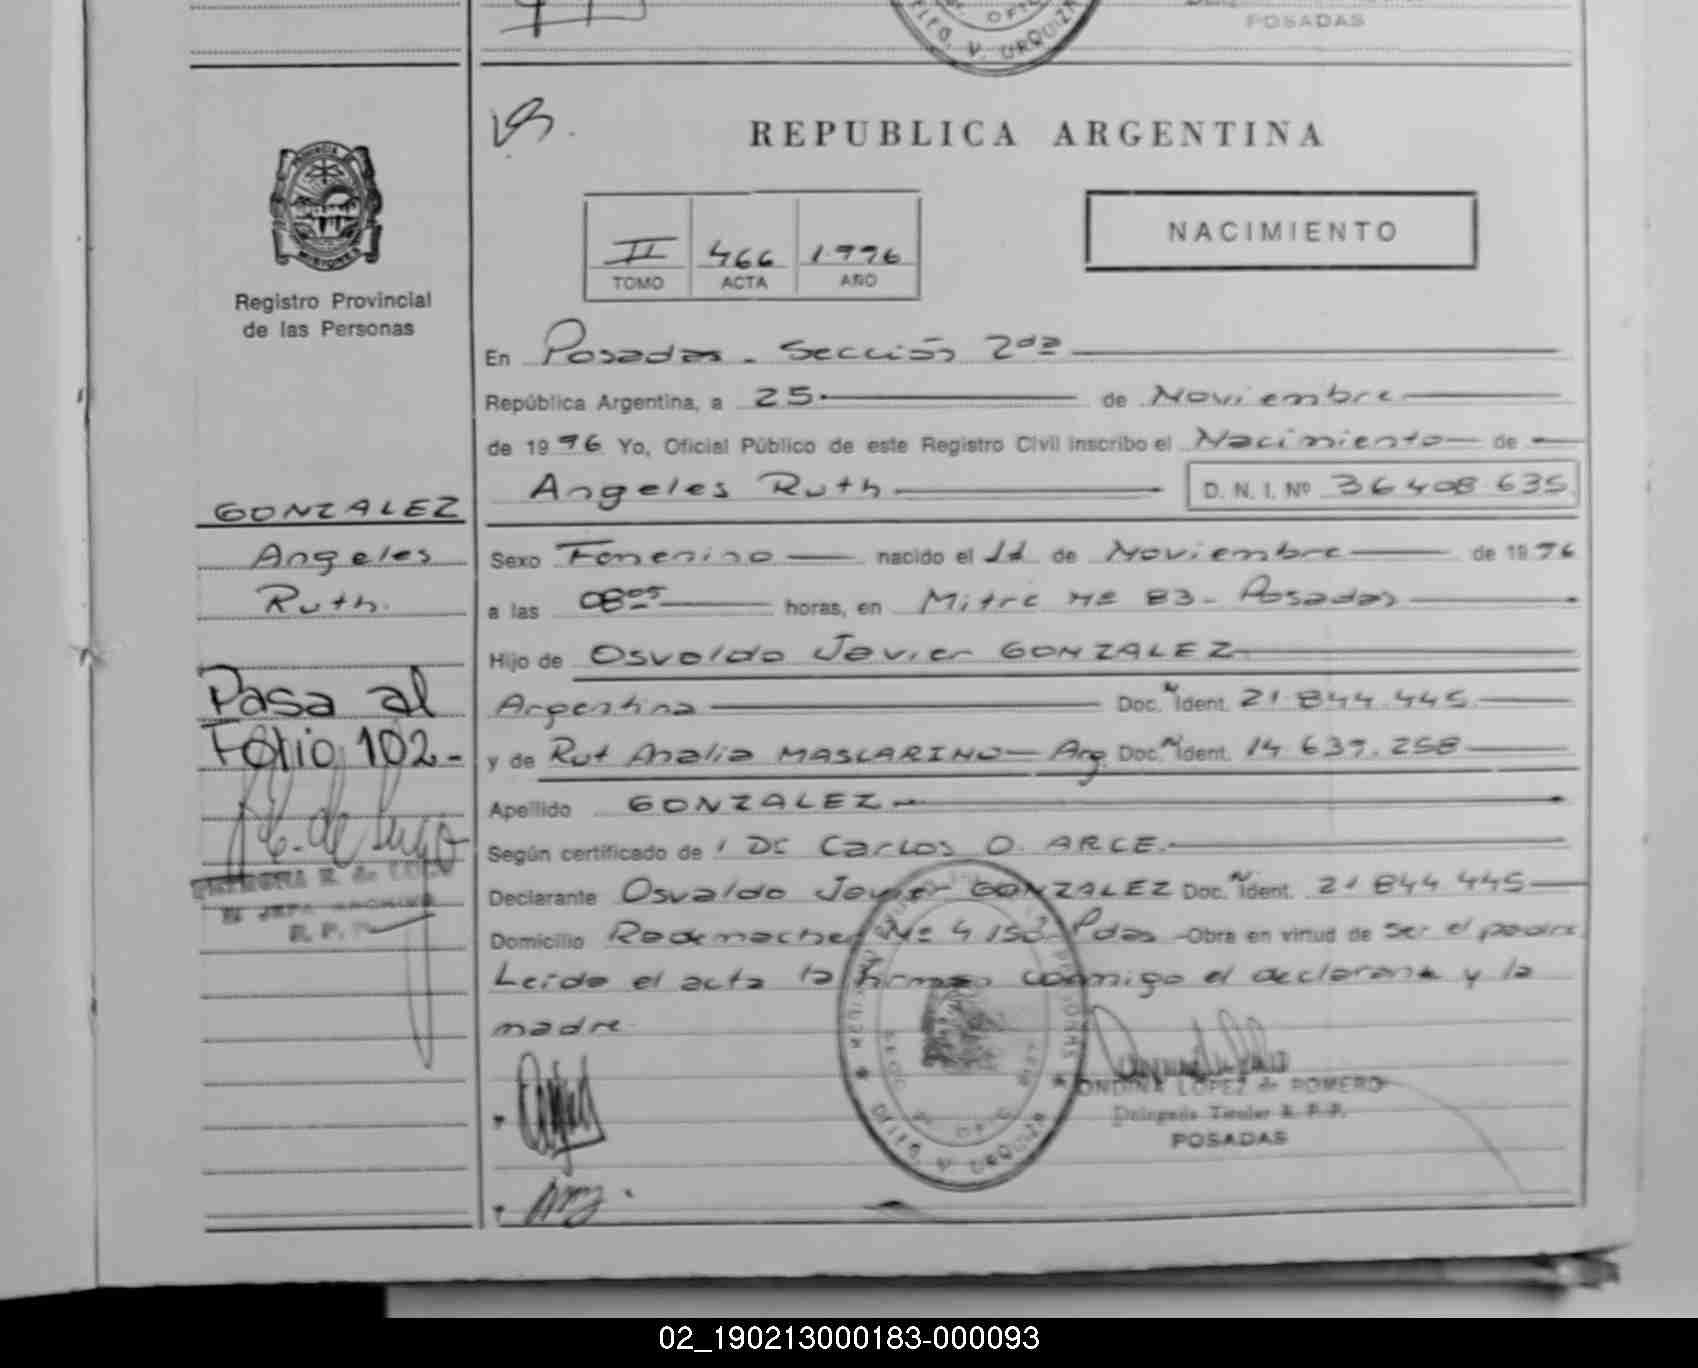 POSADAS
OFIC
DELEG. V. URQUIZA
REPUBLICA ARGENTINA
PROVINCIA DE
MISIONES
Registro Provincial
de las Personas
II 466 1.996
TOMO ACTA AÑO
NACIMIENTO
En Posadas - Sección 2da
República Argentina, a 25 de Noviembre
de 1996 Yo, Oficial Público de este Registro Civil inscribo el Nacimiento de
Angeles Ruth D. N. I. Nº 36 408 635
GONZALEZ
Angeles
Ruth.
Sexo Femenino nacido el 11 de Noviembre de 1996
a las 0805 horas, en Mitre Nº 83 - Posadas
Hijo de Osvaldo Javier GONZALEZ
Argentina Doc. Ident. 21.844.445
y de Rut Analia MASCARINO - Arg. Doc. Ident. 14 639.258
Apellido GONZALEZ
Pasa al
Folio 102-
Según certificado de Dr Carlos O. ARCE.
Declarante Osvaldo Javier GONZALEZ Doc. Ident. 21 844 445
Domicilio Rademacher Nº 4.150 Pdas - Obra en virtud de ser el padre
Leida el acta la firman conmigo el declarante y la
madre
R. de LUGO
JEFA ARCHIVO
R. P. P.
ONDINA LOPEZ de ROMERO
Delegada Titular R. P. P.
POSADAS
OFIC
DELEG. V. URQUIZA
02_190213000183-000093